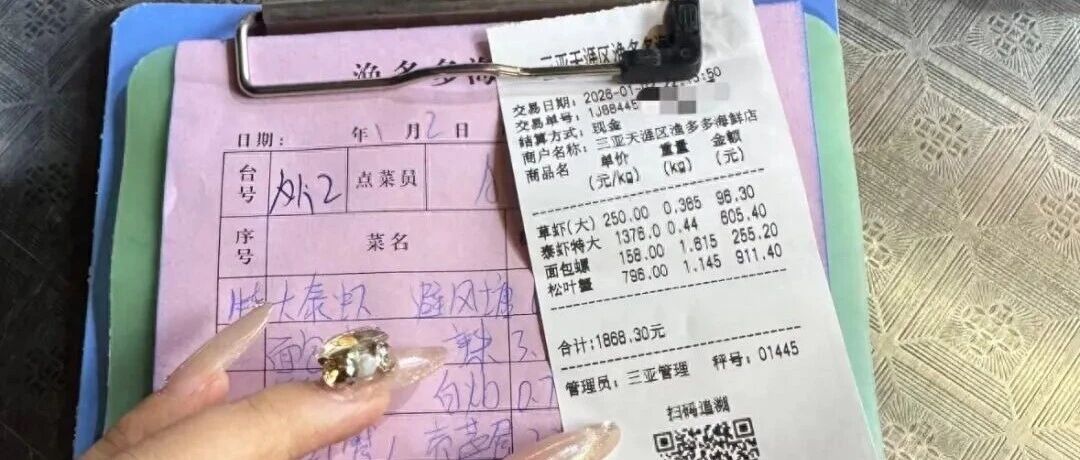 渔多多海
日期: 年 1 月 2 日
台号 外2 点菜员
序号 菜名
特大泰虾 避风塘
面 辣 3.
白灼 0.7
三亚天涯区渔多多海
:50
交易日期: 2026-01-
交易单号: 1J88445
结算方式: 现金
商户名称: 三亚天涯区渔多多海鲜店
商品名 单价 重量 金额
(元/kg) (kg) (元)
草虾(大) 250.00 0.385 96.30
泰虾特大 1376.0 0.44 605.40
面包螺 158.00 1.615 255.20
松叶蟹 796.00 1.145 911.40
合计:1868.30元
管理员: 三亚管理 秤号: 01445
扫码追溯